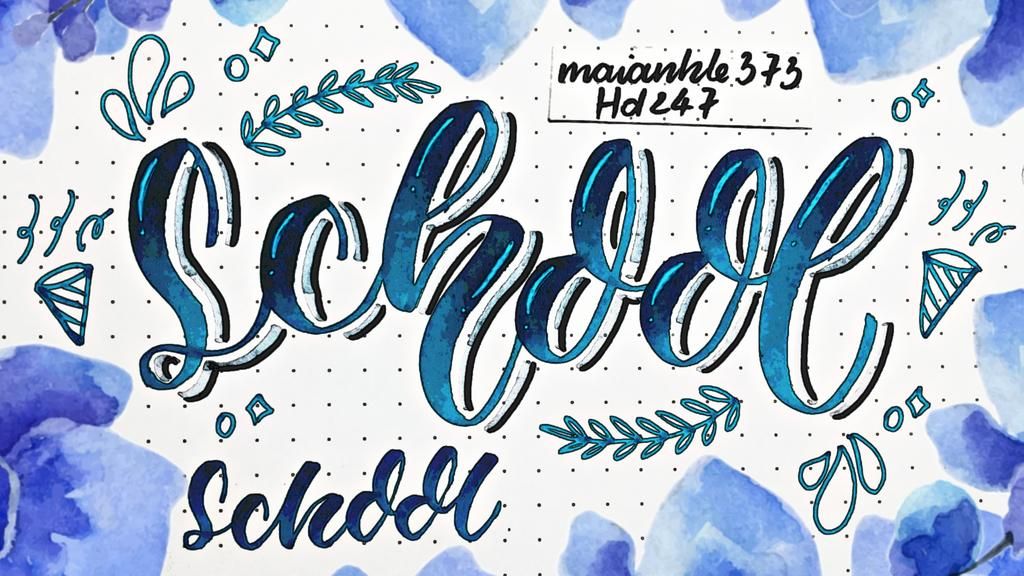 maiankle 373
Hd247
School
School